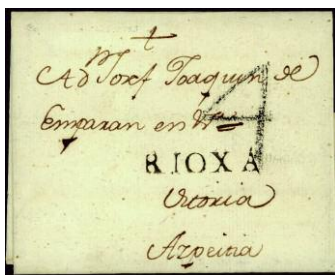 A D Josef Joaquin de
Emparan en
4
RIOXA
Vitoria
Azpeitia